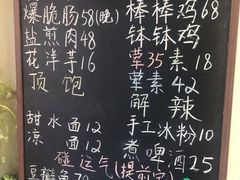 爆脆肠58(晚)
盐煎肉48
花洋芋16
顶饱
甜水面12
凉面12
碰运气(提前定)
豆瓣鱼
棒棒鸡68
钵钵鸡
荤35素18
荤素42
解辣
手工冰粉10
煮啤酒25